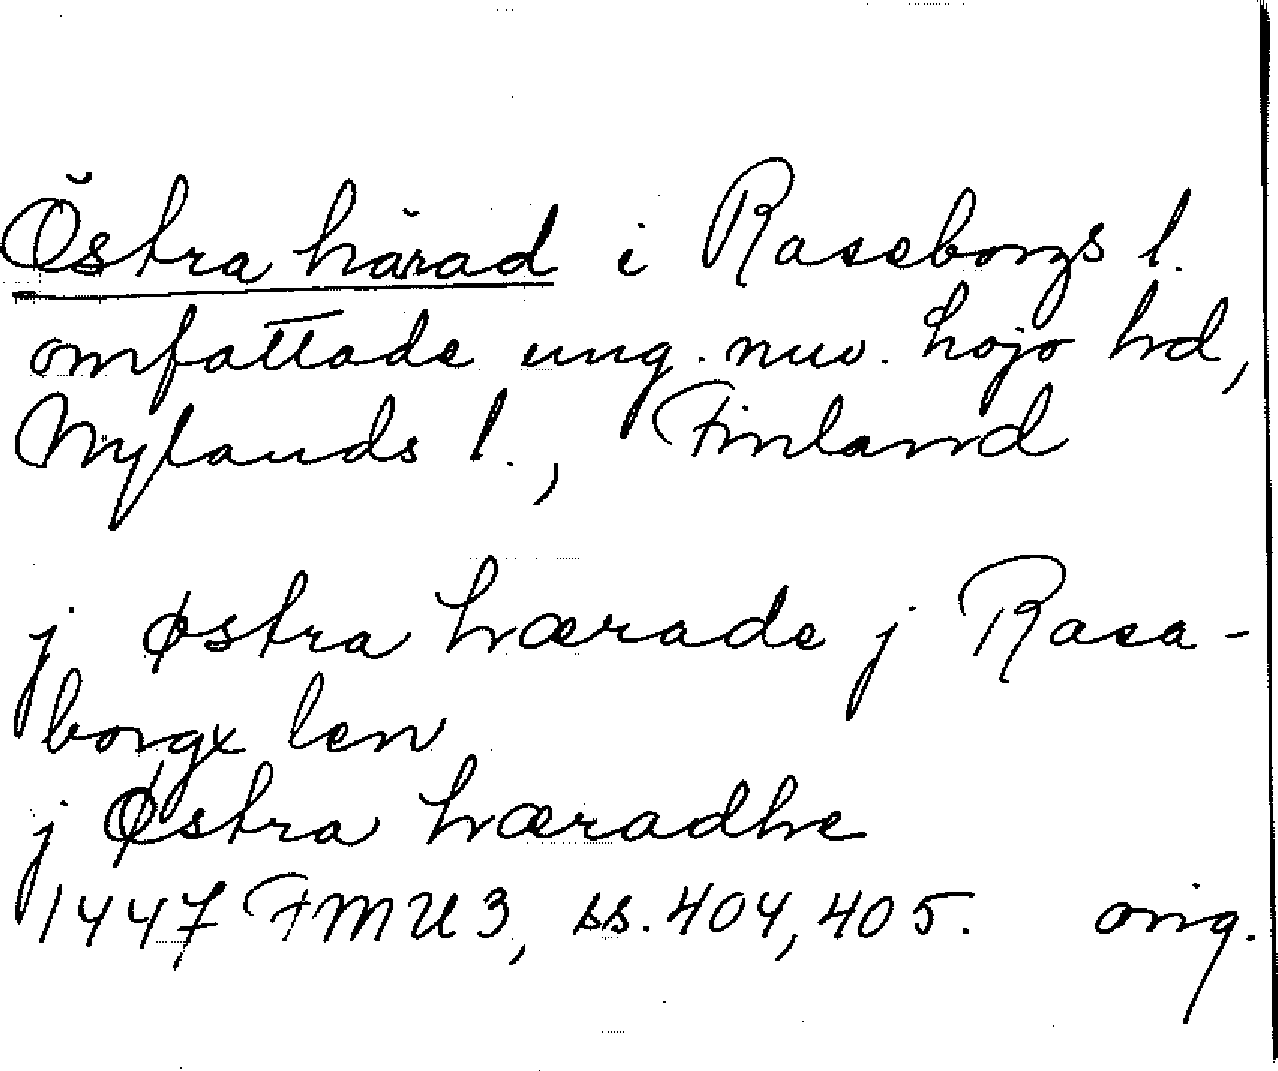 Östra härad i Raseborgs l.
omfattade ung. nuv. Lojo hd,
Nylands l., Finland
j østra hærade j Rasa-
borgx len
j Østra hæradhe
1447 FMU 3, ss. 404, 405. orig.